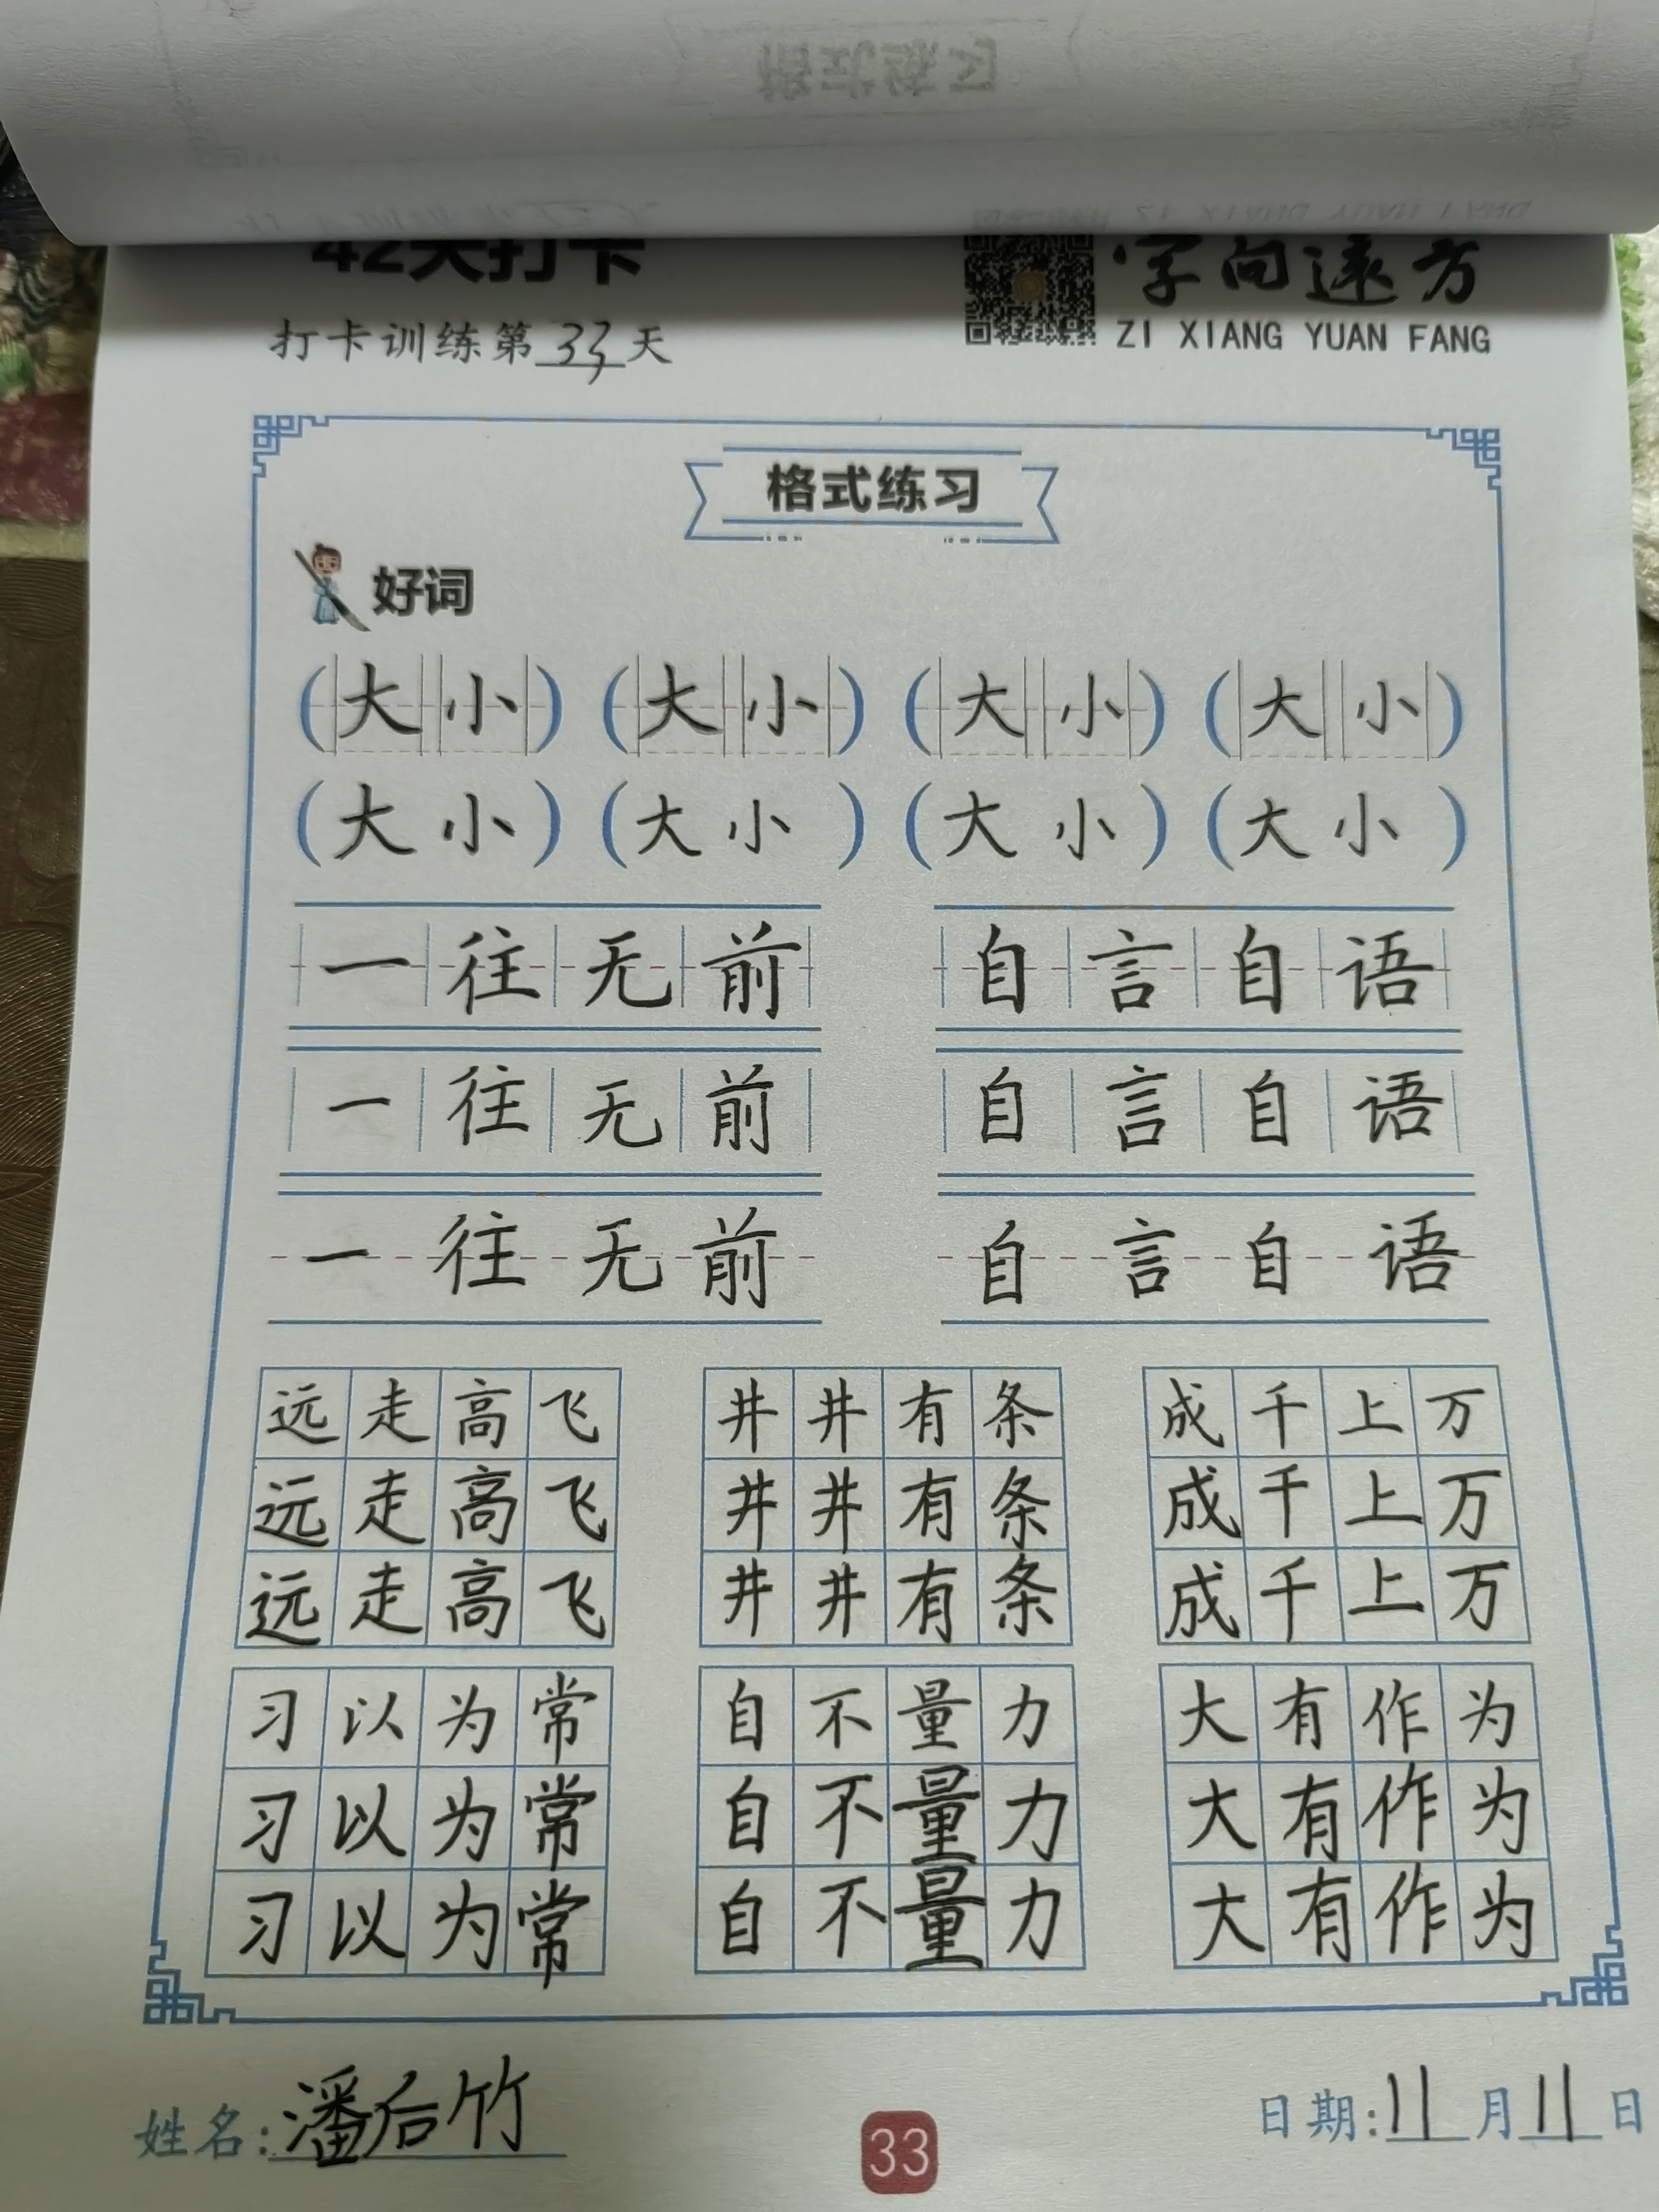 42天打卡
字向远方
打卡训练第33天
ZI XIANG YUAN FANG
格式练习
好词
(大小) (大小) (大小) (大小)
(大小) (大小) (大小) (大小)
一往无前 自言自语
一往无前 自言自语
一往无前 自言自语
远走高飞 井井有条 成千上万
远走高飞 井井有条 成千上万
远走高飞 井井有条 成千上万
习以为常 自不量力 大有作为
习以为常 自不量力 大有作为
习以为常 自不量力 大有作为
姓名:潘后竹
33
日期:11月11日